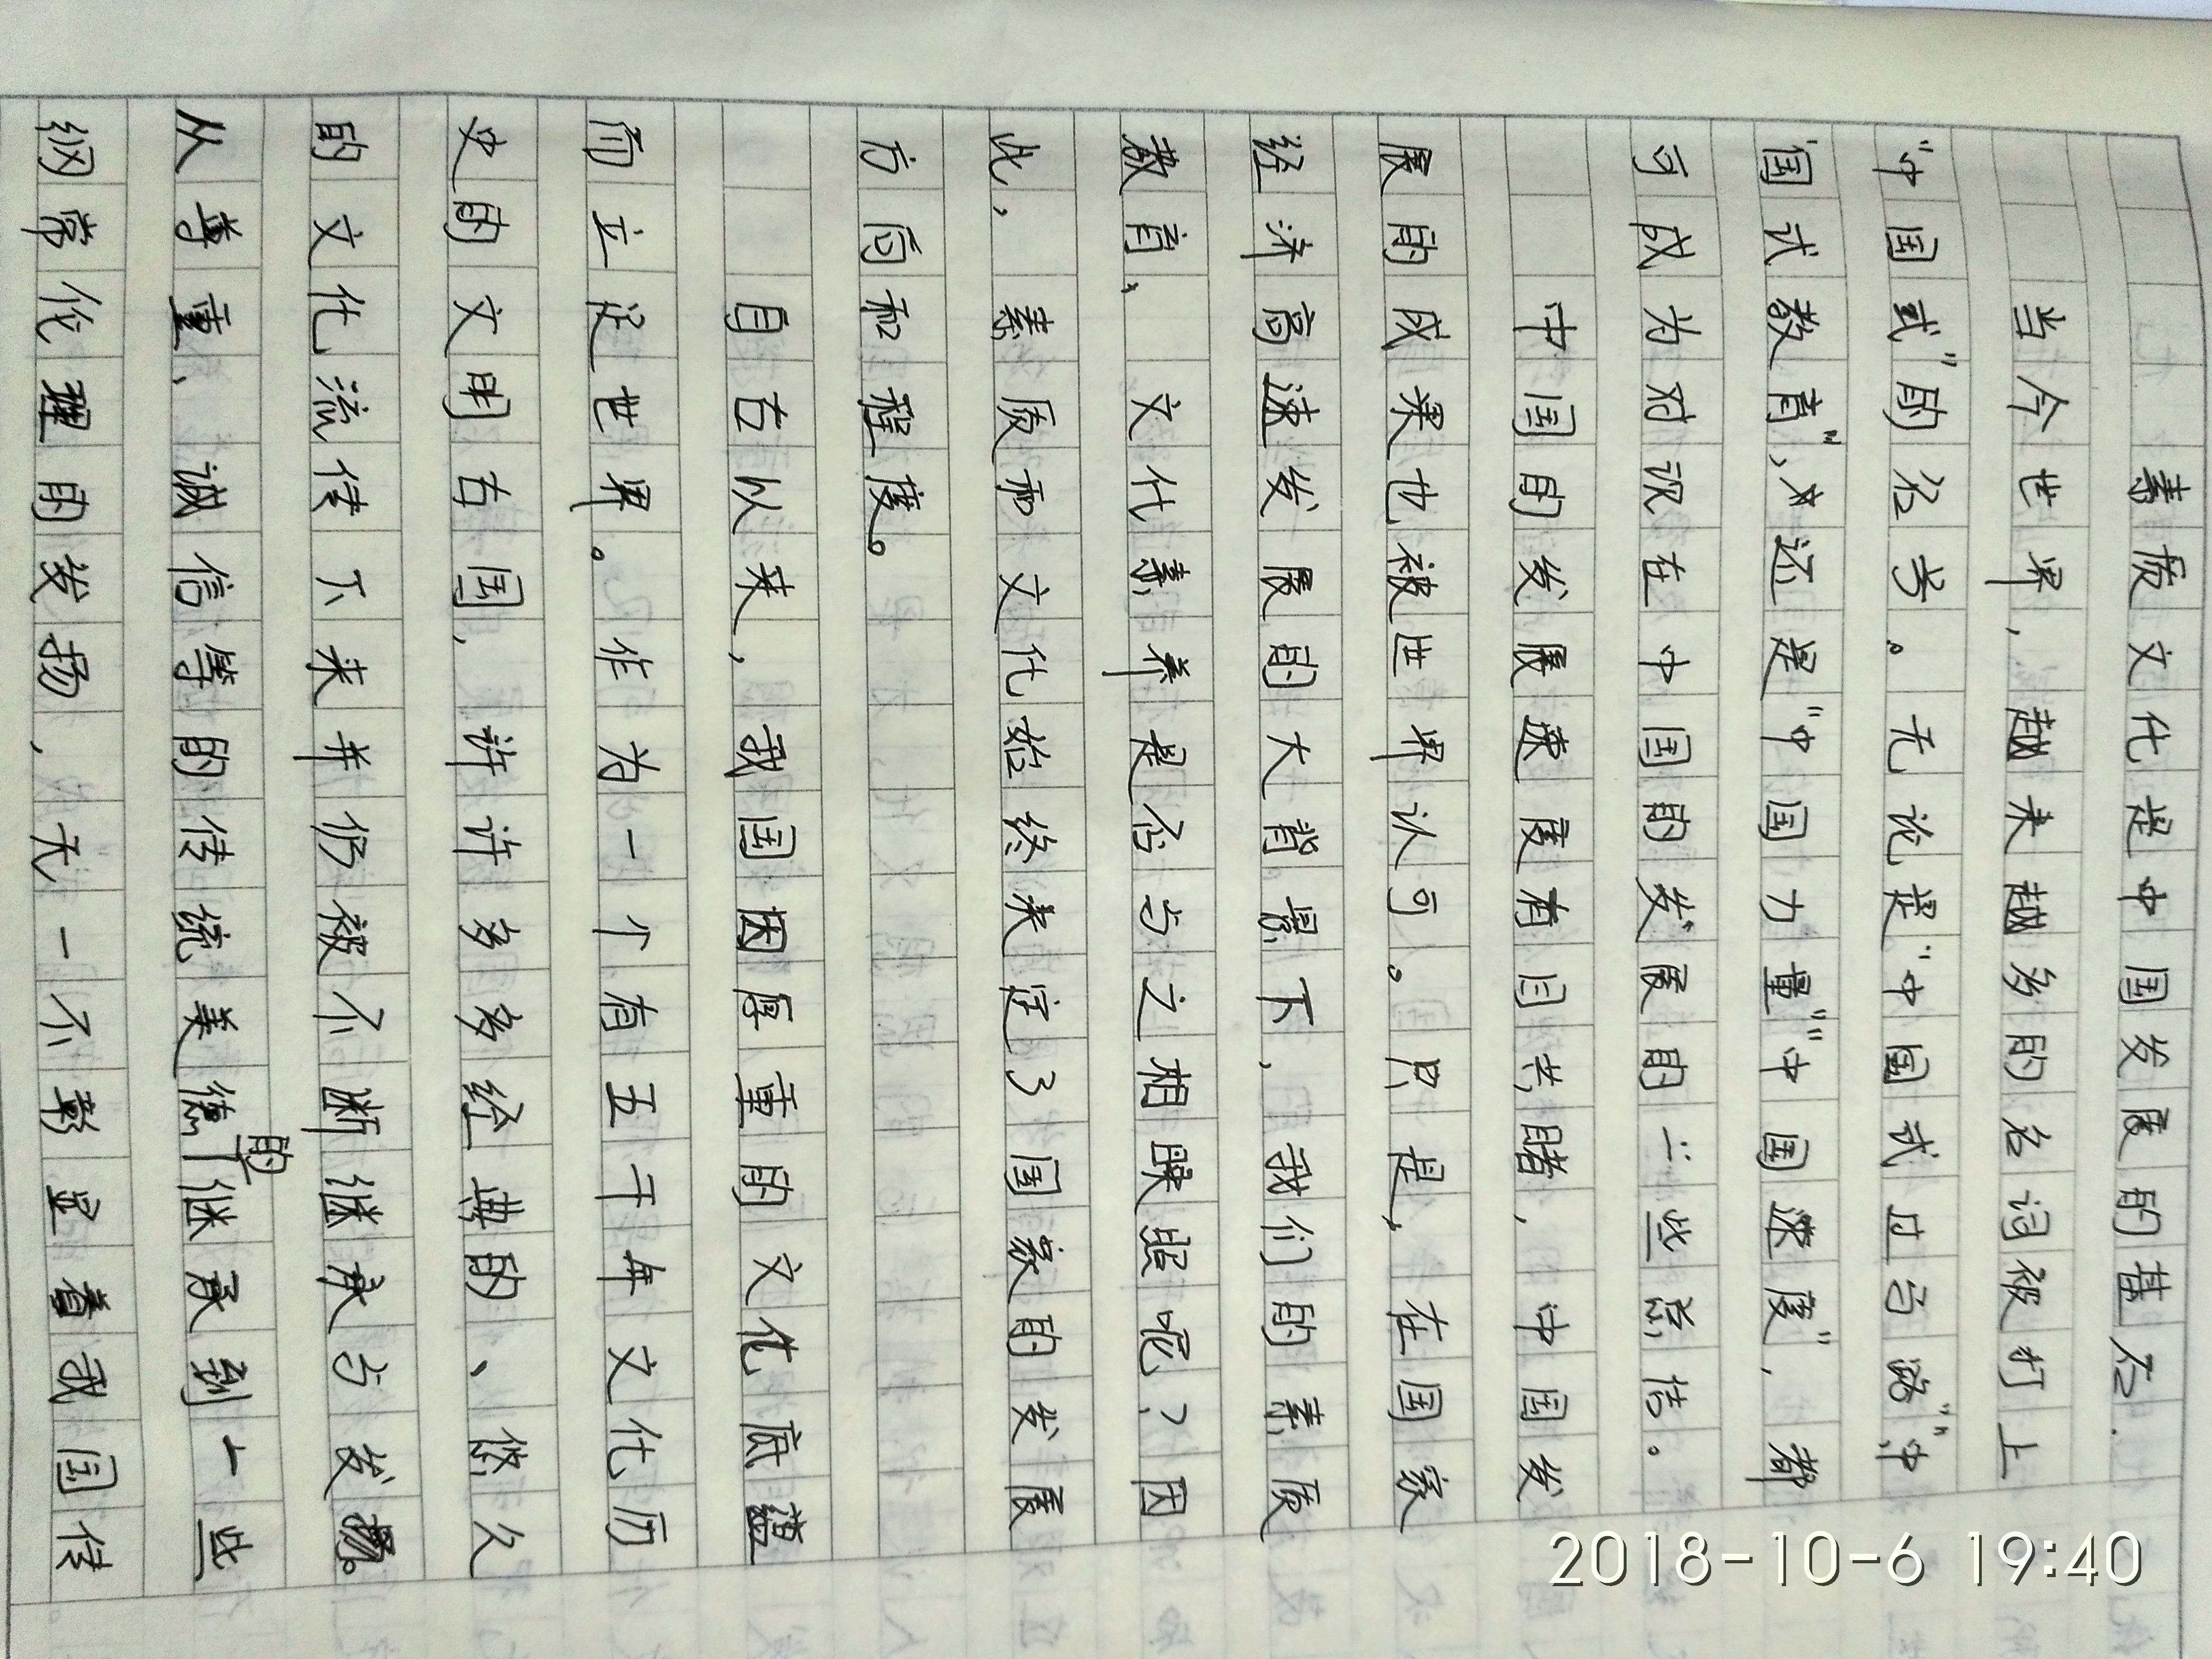 素质文化是中国发展的基石.
当今世界，越来越多的名词被打上
“中国式”的名号。无论是“中国式过马路”“中
国式教育”，还是“中国力量”“中国速度”，都
可成为对说在中国的发展的一些总结。
中国的发展速度有目共睹，中国发
展的成果也被世界认可。只是，在国家
经济高速发展的大背景下，我们的素质
教育，文化素养是否与之相映照呢？因
此，素质和文化始终决定了国家的发展
方向和程度。
自古以来，我国因厚重的文化底蕴
而立足世界。作为一个有五千年文化历
史的文明古国，许许多多经典的、悠久
的文化流传下来并仍被不断继承与发扬。
从尊重、诚信等的传统美德的继承到一些
纲常伦理的发扬，无一不彰显着我国传
2018-10-6 19:40